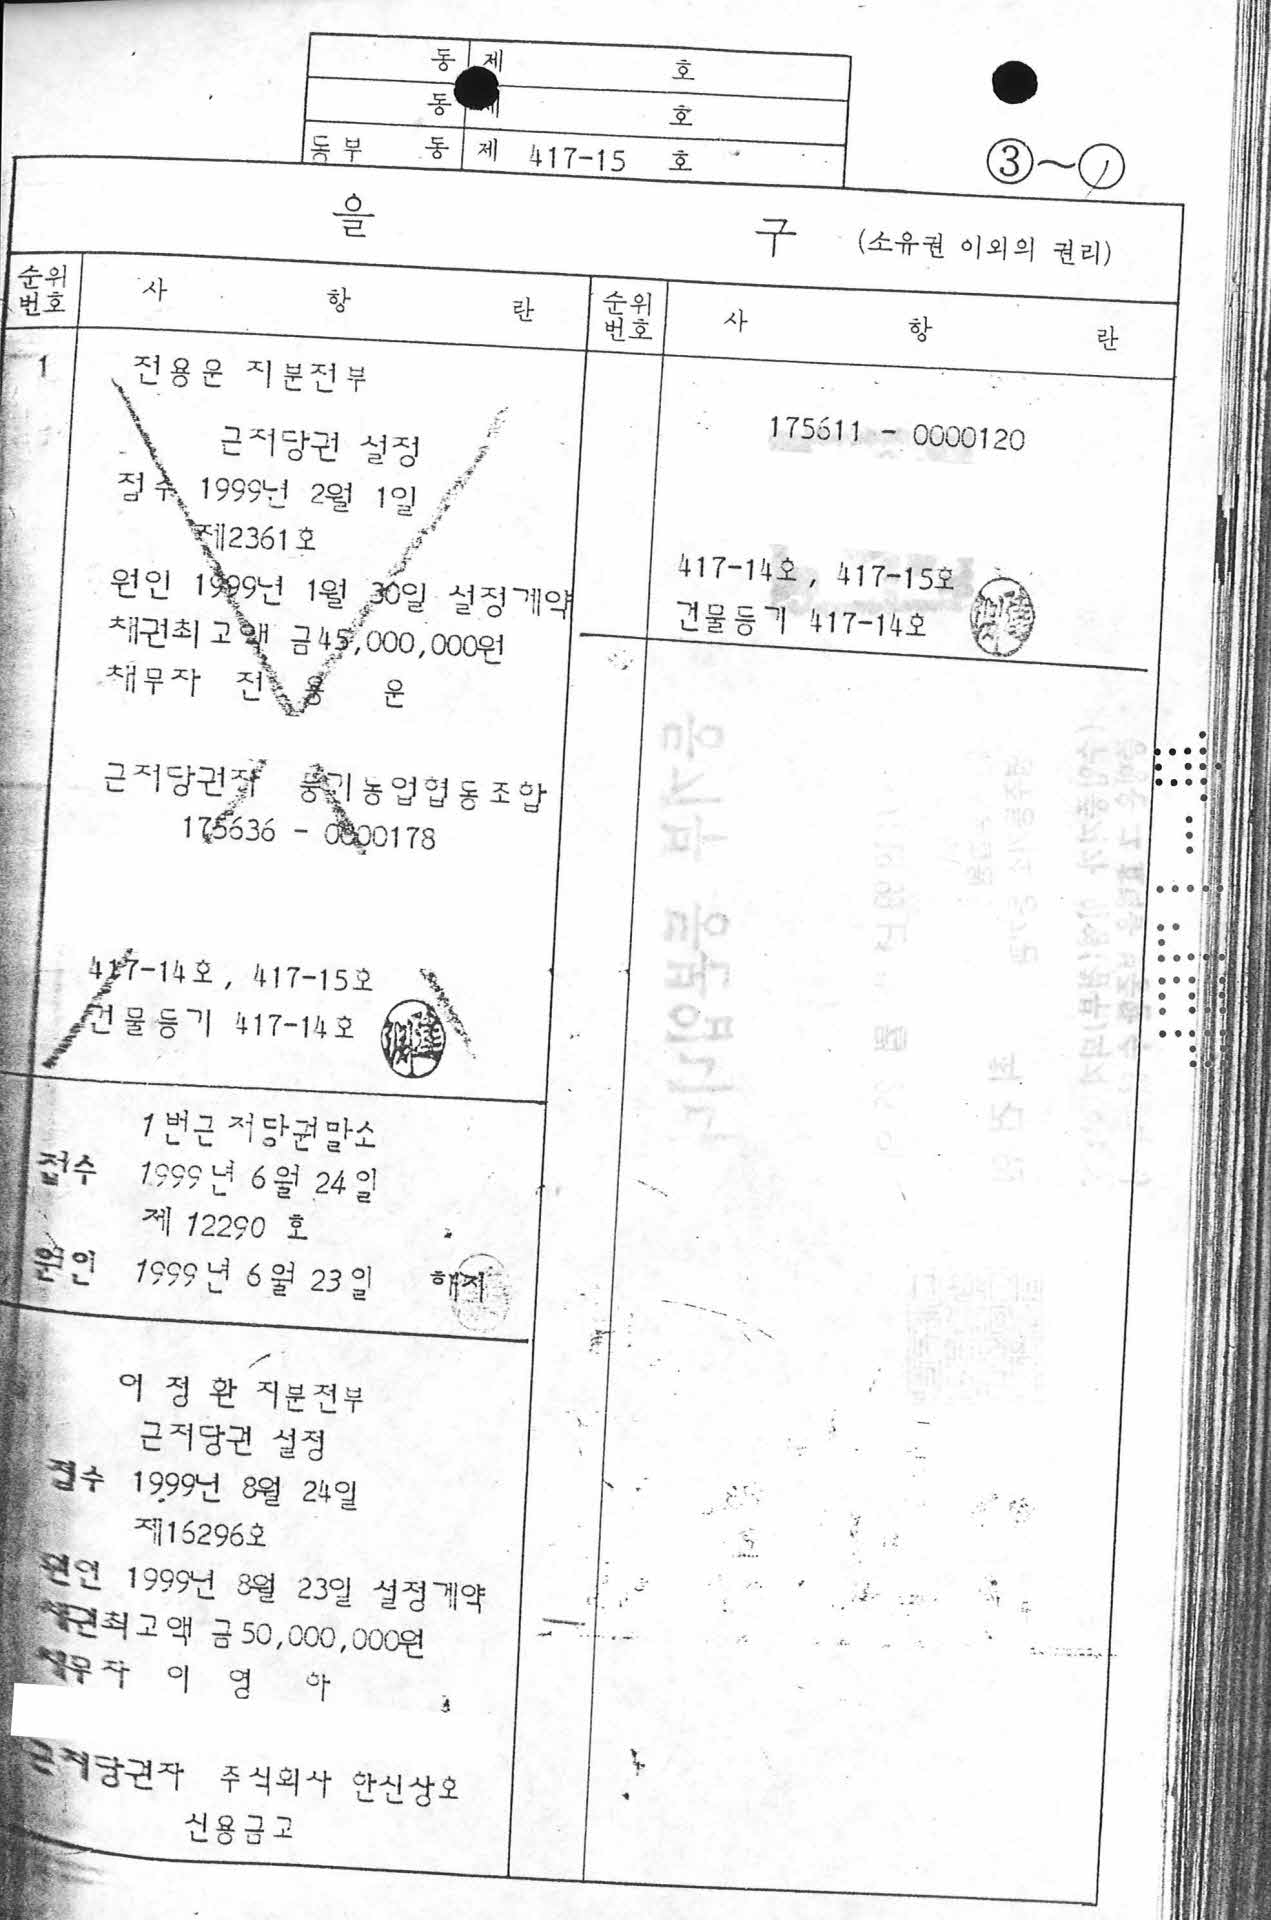 동 제 호
동 제 호
동부 동 제 417-15 호
③~①
을 구 (소유권 이외의 권리)
순위번호 사 항 란
1
전용운 지분전부
근저당권 설정
접수 1999년 2월 1일
제2361호
원인 1999년 1월 30일 설정계약
채권최고액 금45,000,000원
채무자 전 용 운
근저당권자 풍기농업협동조합
175636 - 0000178
417-14호, 417-15호
건물등기 417-14호
1번근저당권말소
접수 1999년 6월 24일
제 12290 호
원인 1999년 6월 23일 해지
이 정 환 지분전부
근저당권 설정
접수 1999년 8월 24일
제16296호
원인 1999년 8월 23일 설정계약
채권최고액 금50,000,000원
채무자 이 영 하
근저당권자 주식회사 한신상호
신용금고
순위번호 사 항 란
175611 - 0000120
417-14호, 417-15호
건물등기 417-14호